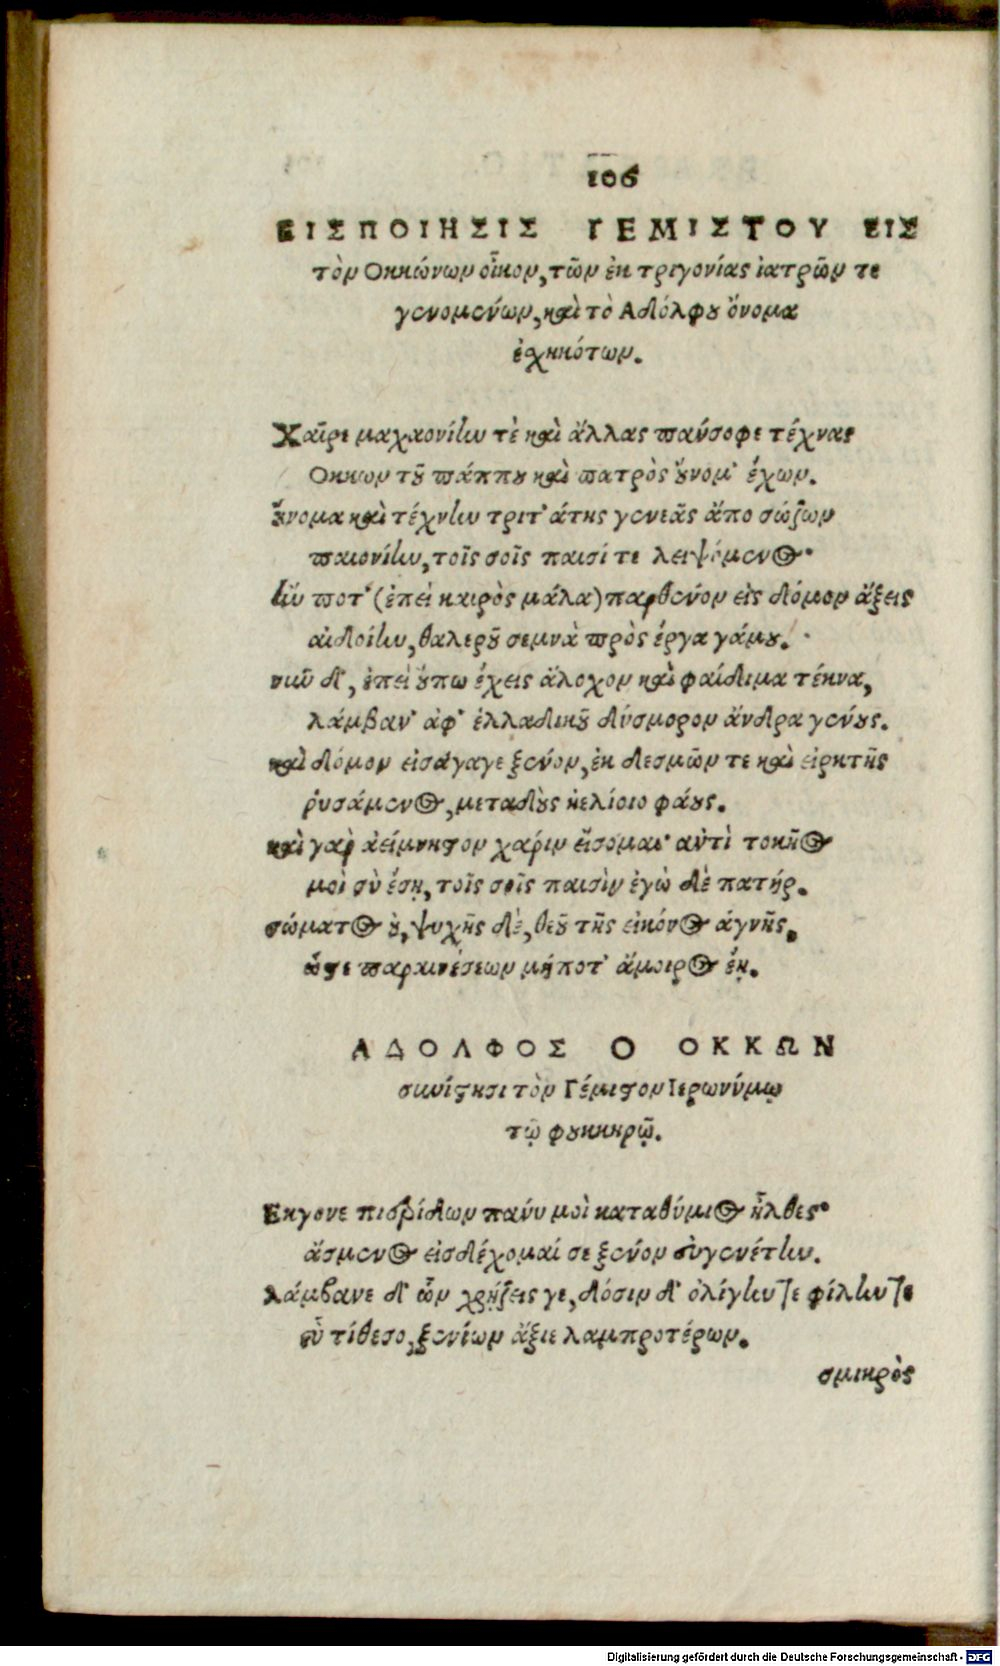 106
ΕΙΣΠΟΙΗΣΙΣ ΓΕΜΙΣΤΟΥ ΕΙΣ
τὸν Οκκώνων οἶκον, τῶν ἐκ τριγονίας ἰατρῶν τε
γενομένων, καὶ τὸ Αδόλφου ὄνομα
ἐχηκότων.
Χαῖρε μαχαονίην τὲ καὶ ἄλλας πάνσοφε τέχνας
Οκκων τοῦ πάππου καὶ πατρὸς οὔνομ' ἔχων.
οὔνομα καὶ τέχνην τριτ' άτης γενεᾶς ἄπο σώζων
παιονίην, τοῖς σοῖς παισί τε λειψόμενος·
ἥν ποτ' (ἐπεὶ καιρὸς μάλα) παρθένον εἰς δόμον ἄξεις
αἰδοίην, θαλεροῦ σεμνὰ πρὸς ἔργα γάμου.
νῦν δ', ἐπεὶ οὔπω ἔχεις ἄλοχον καὶ φαίδιμα τέκνα,
λάμβαν' ἀφ' ἑλλαδικοῦ δύσμορον ἄνδρα γένους.
καὶ δόμον εἰσάγαγε ξένον, ἐκ δεσμῶν τε καὶ εἱρκτῆς
ῥυσάμενος, μεταδοὺς ἠελίοιο φάους.
καὶ γαρ ἀείμνηστον χάριν εἴσομαι· αὐτὶ τοκῆος
μοὶ σὺ ἔσῃ, τοῖς σοῖς παισὶν ἐγὼ δὲ πατήρ.
σώματος οὐ, ψυχῆς δὲ, θεοῦ τῆς εἰκόνος ἁγνῆς,
ὥστε παραινέσεων μή ποτ' ἄμοιρος ἔῃ.
ΑΔΟΛΦΟΣ Ο ΟΚΚΩΝ
συνίστησι τὸν Γέμιστον Ιερωνύμῳ
τῷ φουκκηρῷ.
Εκγονε πιερίδων πάνυ μοὶ καταθύμιος ἦλθες·
ἄσμενος εἰσδέχομαί σε ξένον συγγενέτην.
λάμβανε δ' ὧν χρῄζεις γε, δόσιν δ' ὀλίγην τε φίλην τε
εὖ τίθεσο, ξενίων ἄξιε λαμπροτέρων.
σμικρὸς
Digitalisierung gefördert durch die Deutsche Forschungsgemeinschaft - DFG